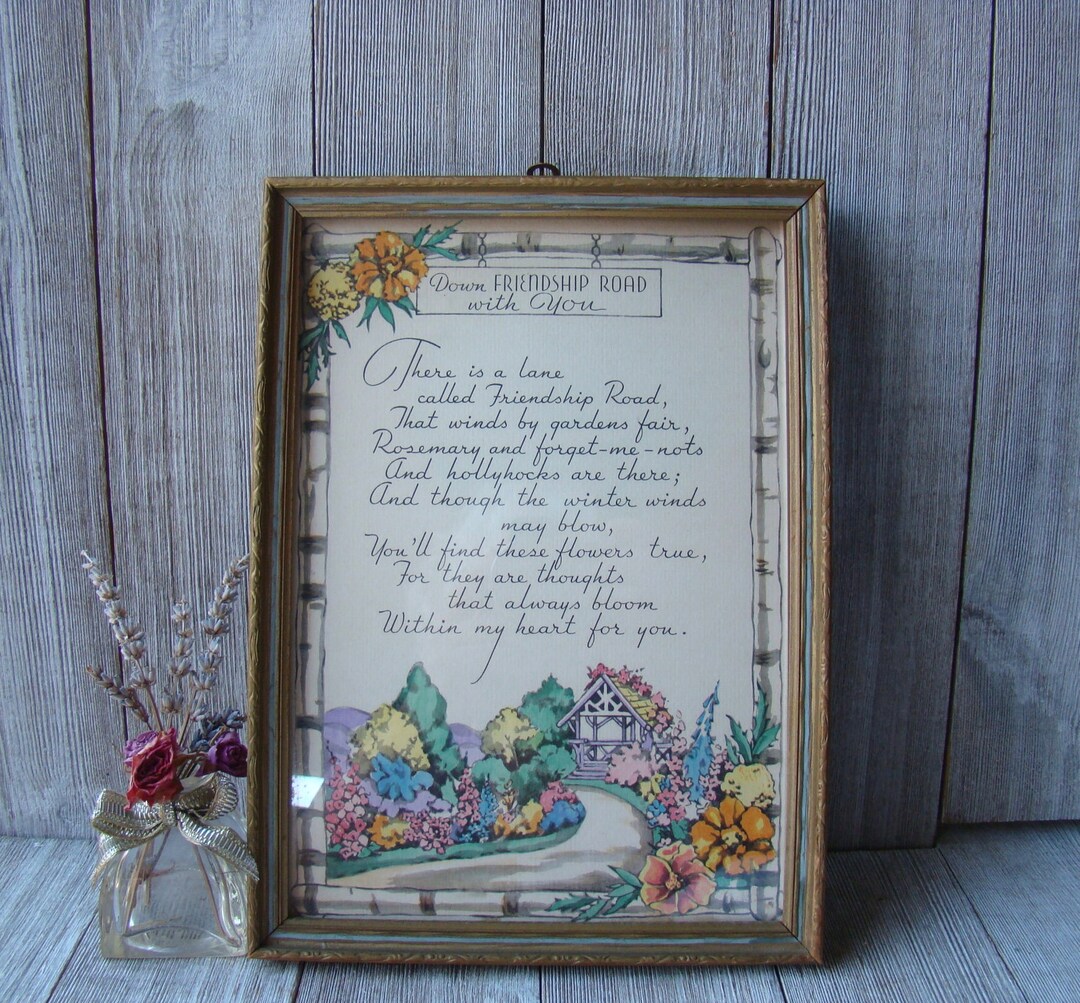 Down FRIENDSHIP ROAD
with You
There is a lane
called Friendship Road,
That winds by gardens fair,
Rosemary and forget-me-nots
And hollyhocks are there;
And though the winter winds
may blow,
You'll find these flowers true,
For they are thoughts
that always bloom
Within my heart for you.